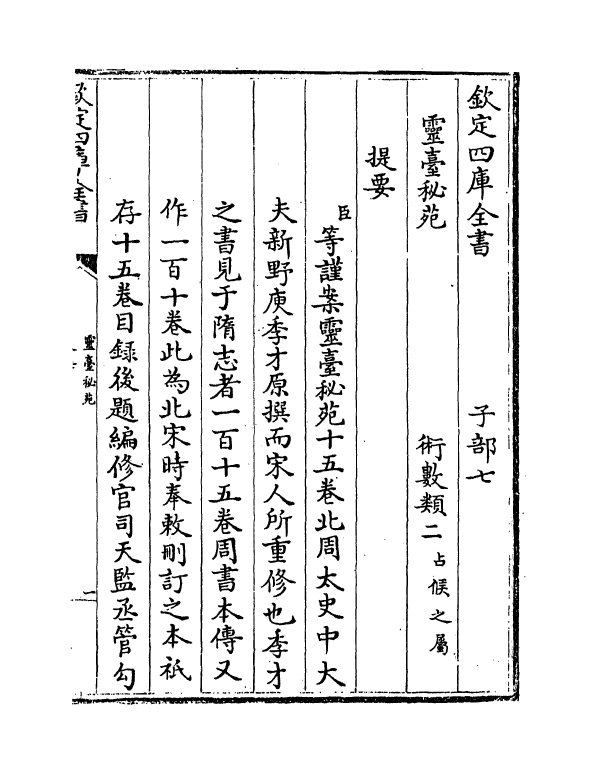 欽定四庫全書 子部七
靈臺秘苑 術數類二占候之屬
提要
臣等謹案靈臺秘苑十五卷北周太史中大
夫新野庾季才原撰而宋人所重修也季才
之書見于隋志者一百十五卷周書本傳又
作一百十卷此為北宋時奉敕刪訂之本祇
存十五卷目録後題編修官司天監丞管勾
欽定四庫全書
靈臺秘苑
一